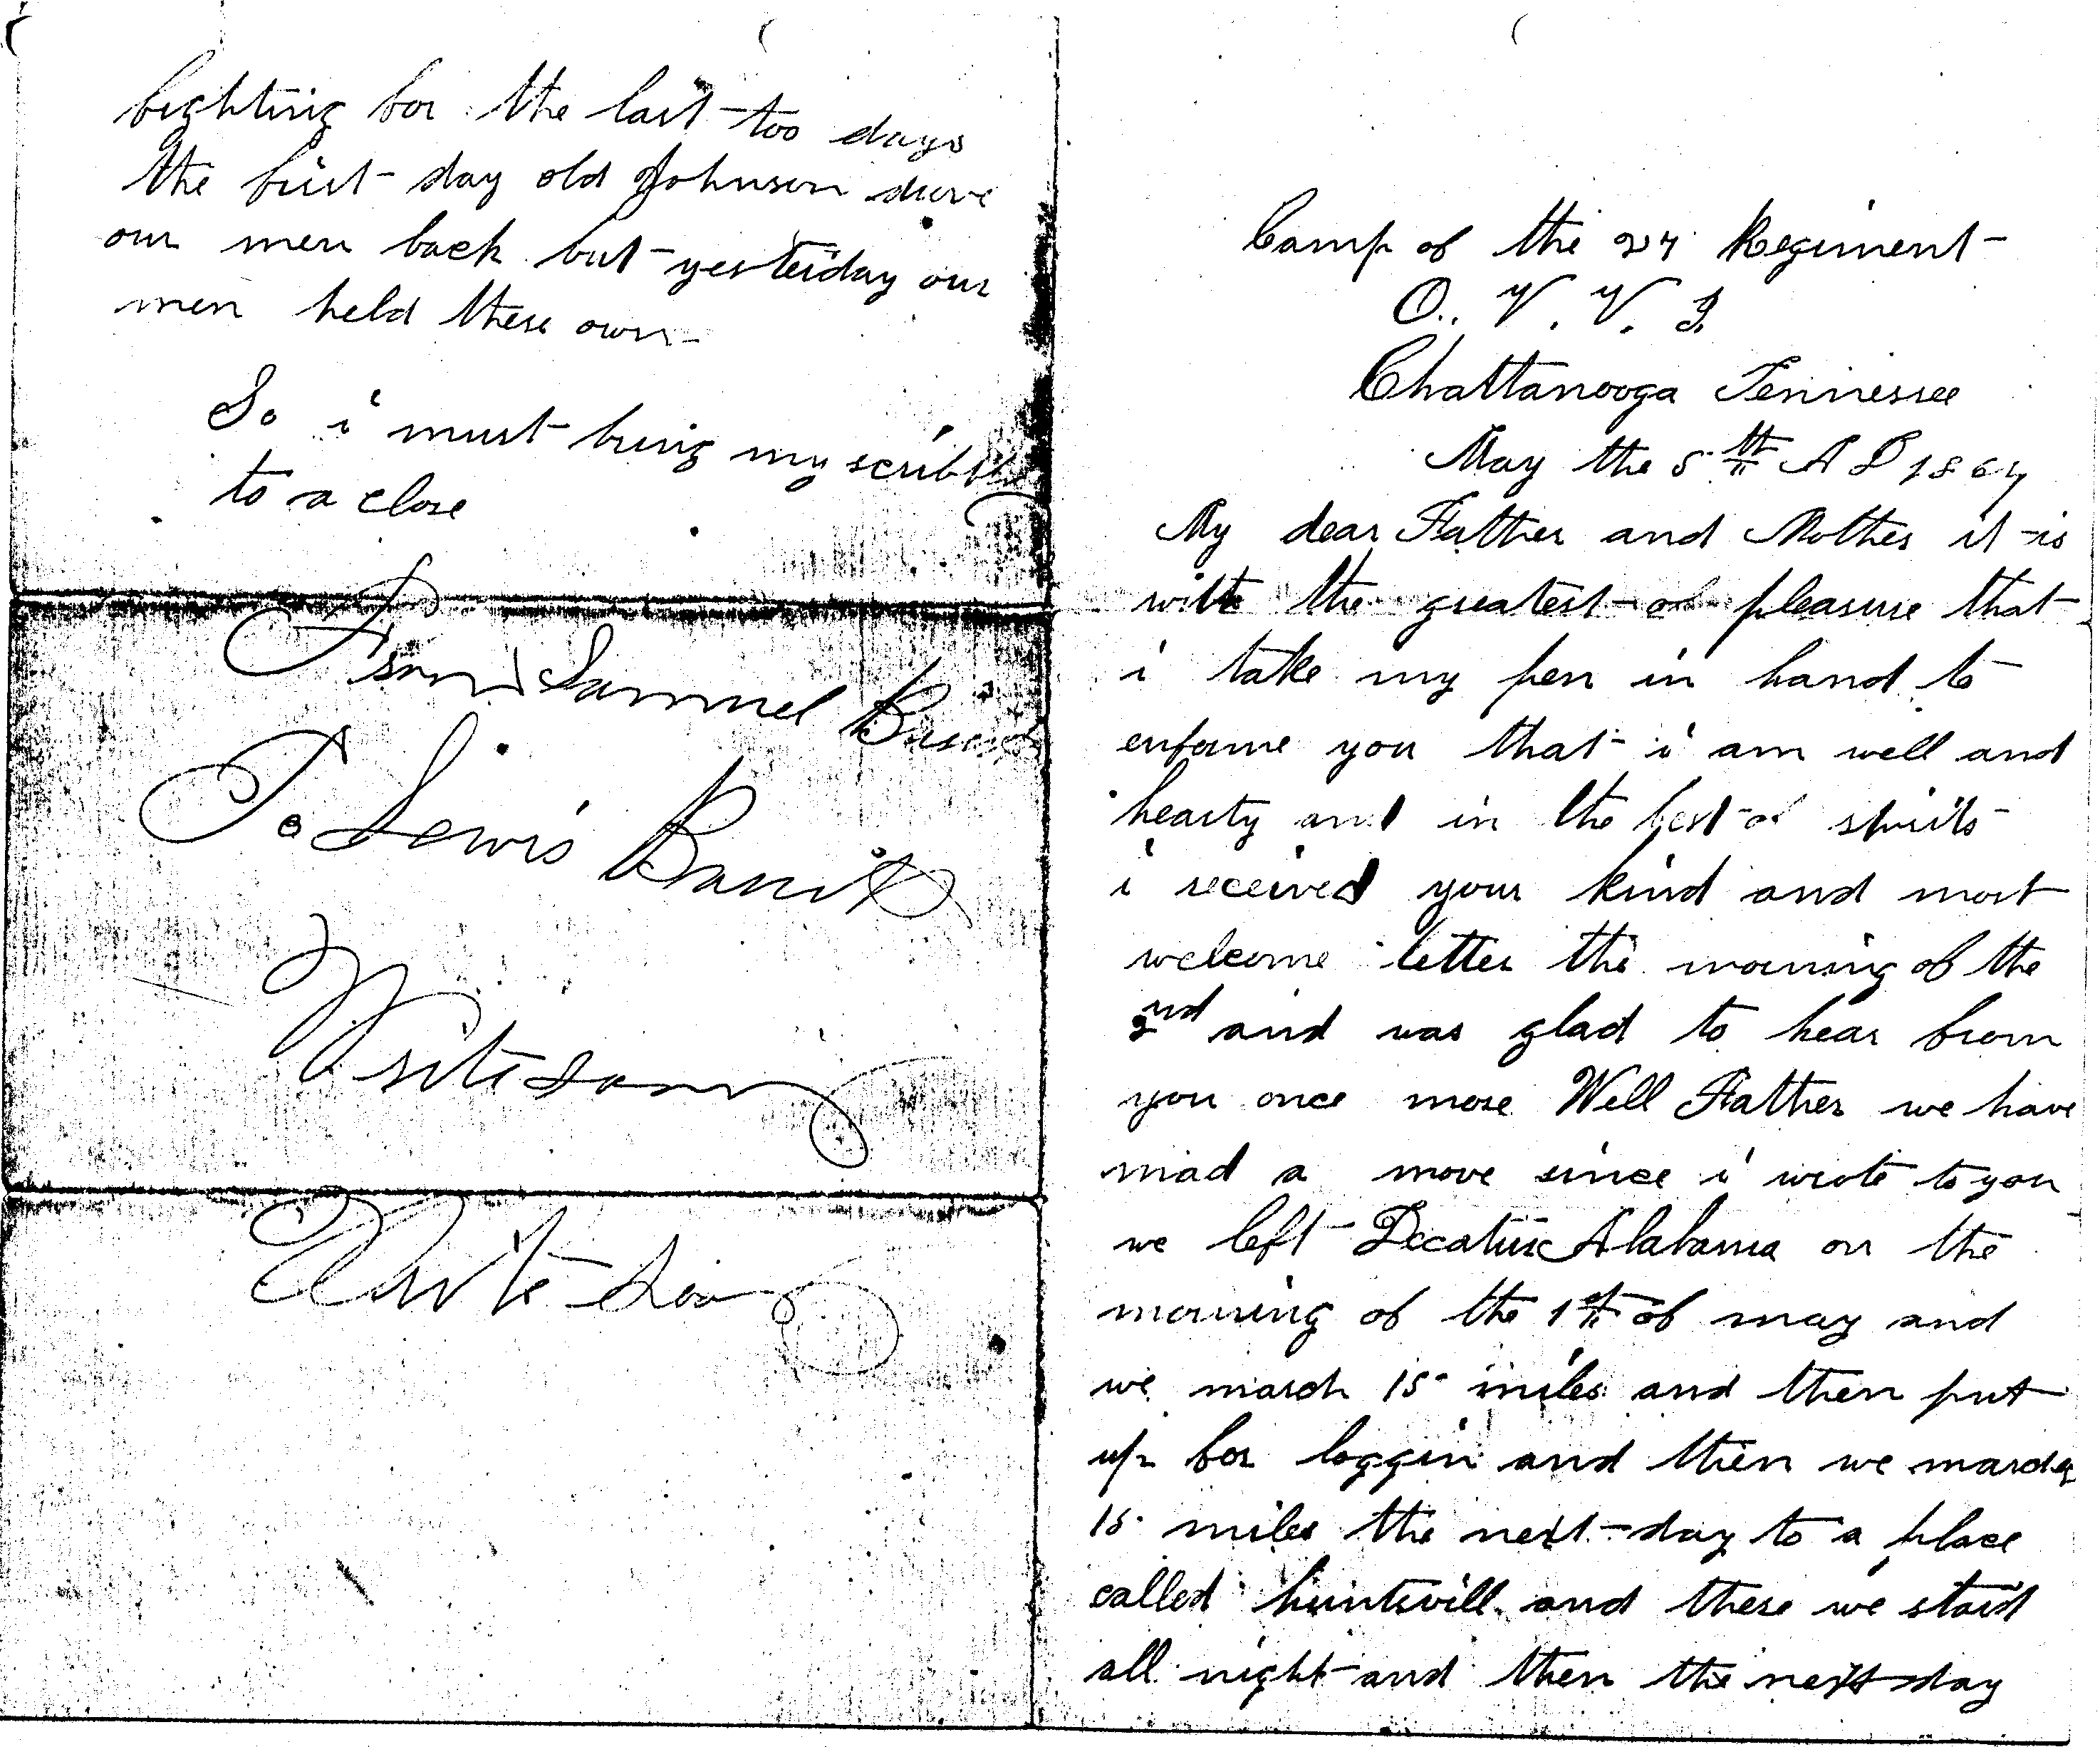 fighting for the last too days
the first day old Johnson drove
our men back but yesterday our
men held there own
So i must bring my scribbl
to a close
From Samuel
To Lewis
Write soon
Write soon
Camp of the 27 Regiment
O. V. V. I.
Chattanooga Tennessee
May the 5th A D 1864
My dear Father and Mother it is
with the greatest of pleasure that
i take my pen in hand to
enforme you that i am well and
hearty and in the best of spirits
i received your kind and most
welcome letter the morning of the
2nd and was glad to hear from
you once more Well Father we have
mad a move since i wrote to you
we left Decature Alabama on the
morning of the 1st of may and
we march 15 miles and then put
up for loggin and then we march
15 miles the next day to a place
called huntsvill and there we staid
all night and then the next day